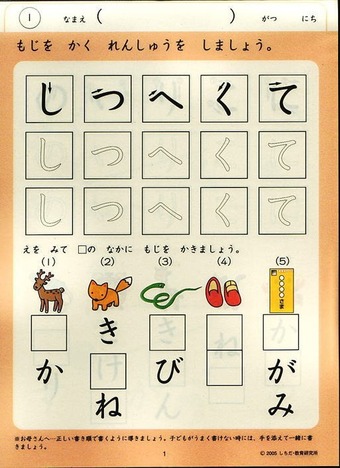 1 なまえ ( ) がつ にち
もじを かく れんしゅうを しましょう。
し つ へ く て
し つ へ く て
し つ へ く て
えを みて □の なかに もじを かきましょう。
(1) (2) (3) (4) (5)
き
か び が
ね み
※お母さんへ…正しい書き順で書くように導きましょう。子どもがうまく書けない時には、手を添えて一緒に書きましょう。
1
© 2005 しちだ・教育研究所